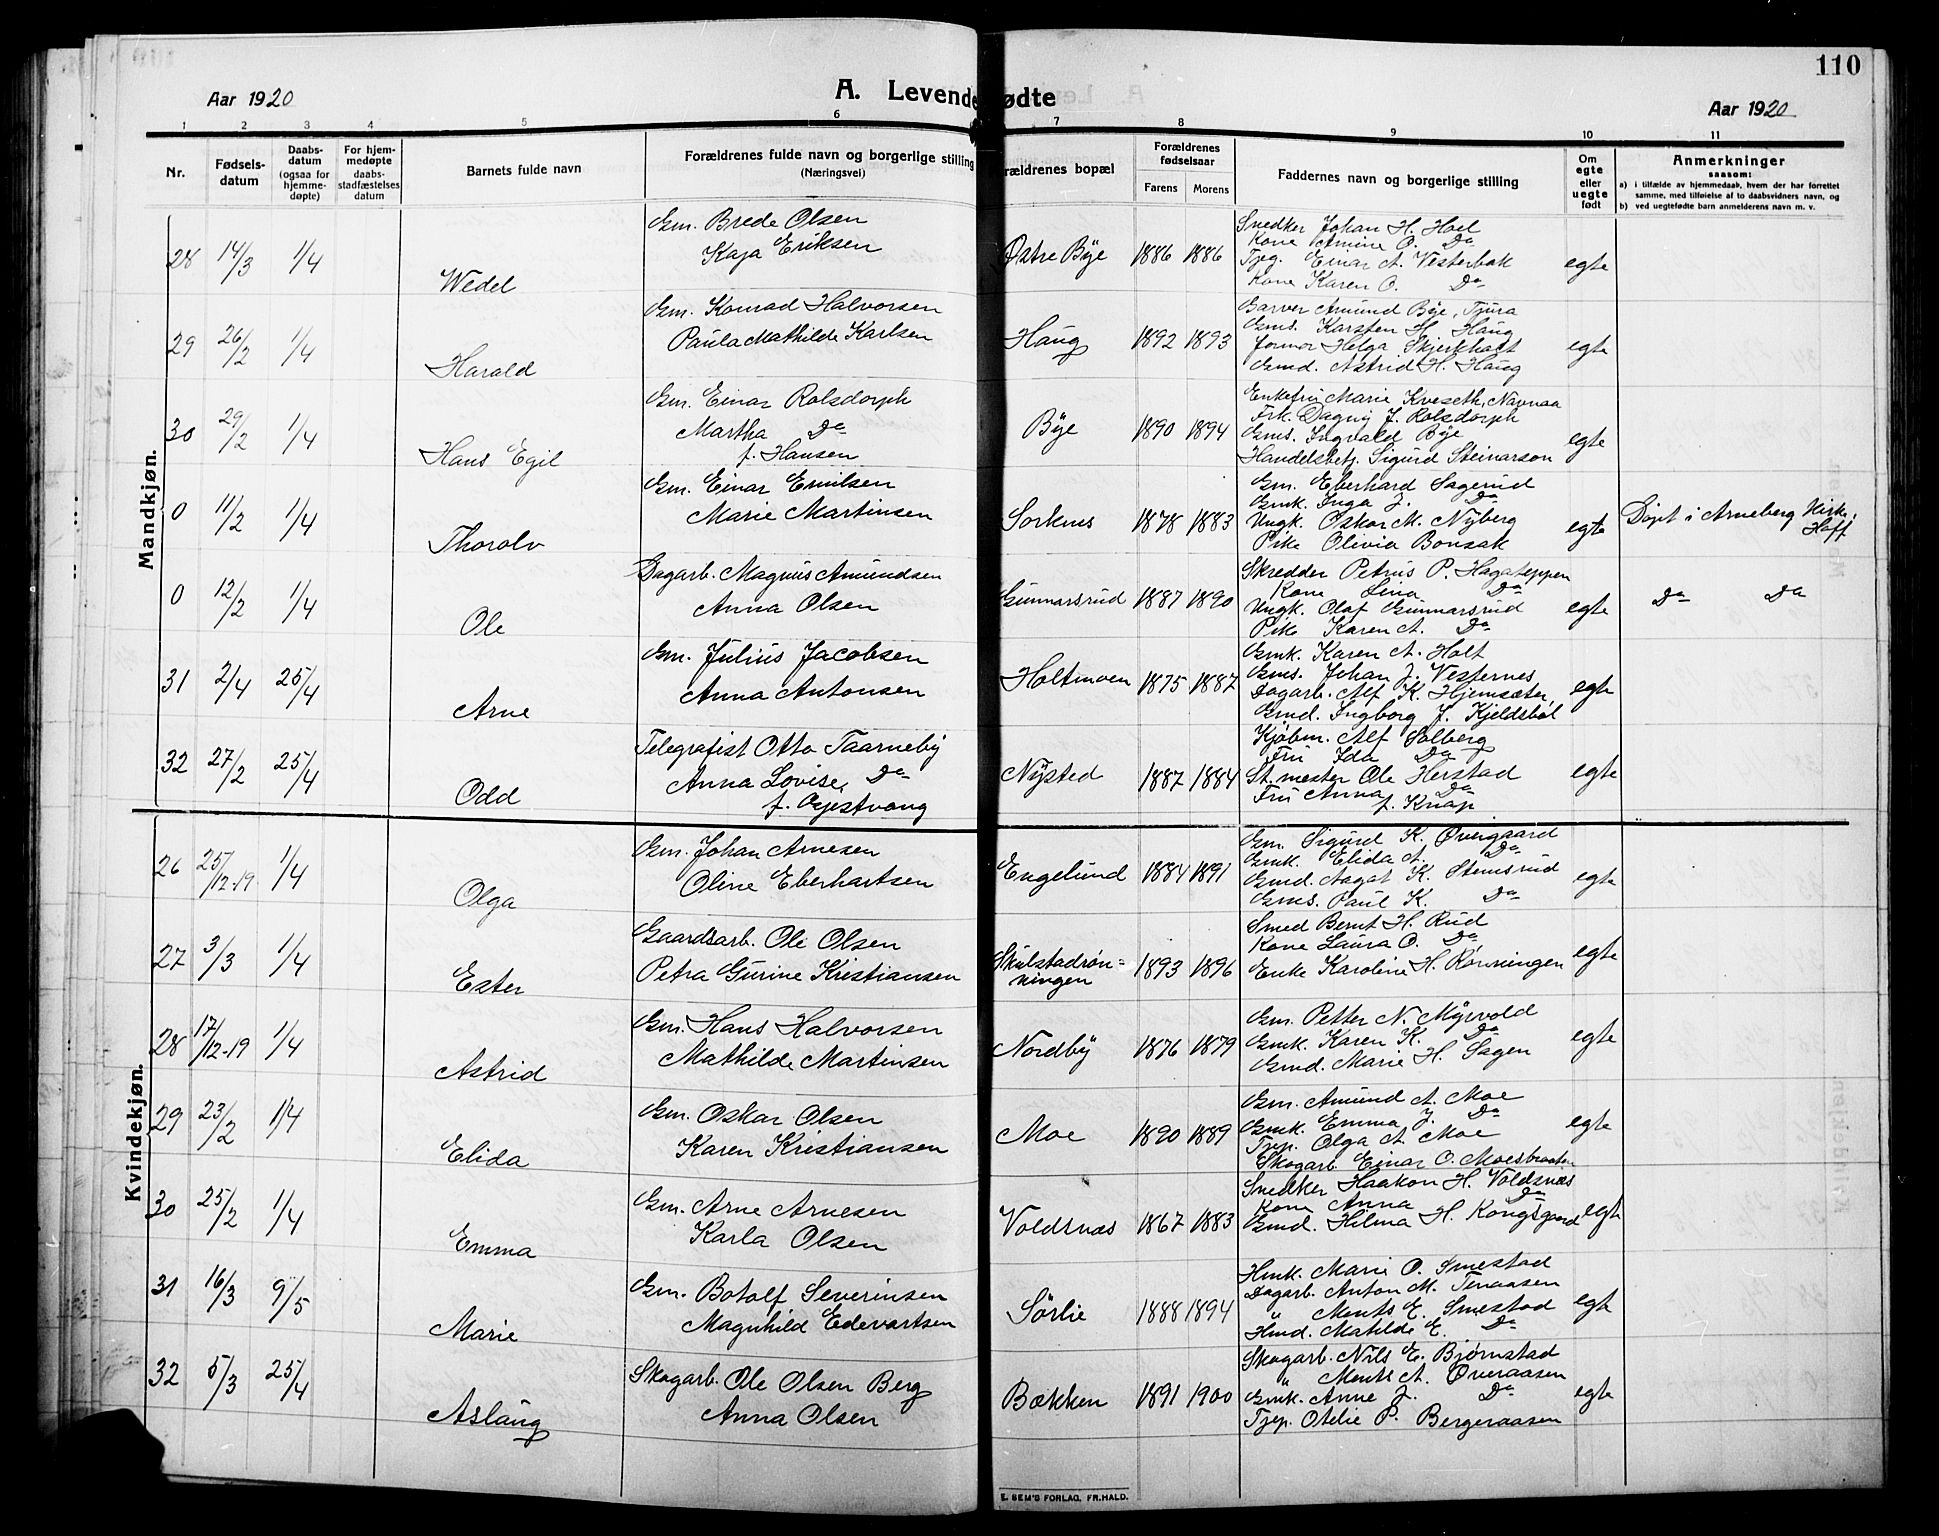 110
Aar 1920
A. Levendefødte
Aar 1920
1 2 3 4 5 6 7 8 9 10 11
Nr.
Fødsels-
datum
Daabs-
datum
(ogsaa for
hjemme-
døpte)
For hjem-
medøpte
daabs-
stadfæstelses
datum
Barnets fulde navn
Forældrenes fulde navn og borgerlige stilling
(Næringsvei)
rældrenes bopæl
Forældrenes
fødselsaar
Farens Morens
Faddernes navn og borgerlige stilling
Om
egte
eller
uegte
født
Anmerkninger
saasom:
a) i tilfælde av hjemmedaab, hvem der har forrettet
samme, med tilføielse af to daabsvidners navn, og
b) ved uegtefødte barn anmelderens navn m. v.
Mandkjøn.
28 14/3 1/4 Wedel
Gm. Brede Olsen
Kaja Eriksen
Østre Bye 1886 1886
Snedker Johan H. Hoel
Kone Amine O. Do
Tjeg. Einar A. Vesterbak
Kone Karen O. Do
egte
29 26/2 1/4 Harald
Gm. Konrad Halvorsen
Paula Mathilde Karlsen
Haug 1892 1893
Garver Amund Bye, Tjura
Gms. Karsten H. Haug
Helga Skjerkholt
Gmd. Astrid H. Haug
egte
30 29/2 1/4 Hans Egil
Gm. Einar Rolsdorph
Martha Do
f. Hansen
Bye 1890 1894
Enkefru Marie Kveseth, Navnaa
Frk. Dagny J. Rolsdorph
Gms. Ingvald Bye
Handelsbetj. Sigurd Steinarson
egte
0 11/2 1/4 Thoralv
Gm. Einar Emilsen
Marie Martinsen
Sorknes 1878 1883
Gm. Eberhard Sagerud
Gmk. Inga J. Do
Ungk. Oskar M. Nyberg
Pike Olivia Bonsak
egte
Døpt i Arneberg Kirke,
Hoff
0 12/2 1/4 Ole
Dagarb. Magnus Amundsen
Anna Olsen
Gunnarsrud 1887 1890
Skredder Petrus P. Hagateppen
Kone Lina Do
Ungk. Olaf Gunnarsrud
Pike Karen A. Do
egte
Do Do
31 2/4 25/4 Arne
Gm. Julius Jacobsen
Anna Antonsen
Holtmoen 1875 1887
Gmk. Karen A. Holt
Gms. Johan J. Vesternes
Dagarb. Alf K. Hjemsæter
Gmd. Ingborg J. Kjeldsbøl
egte
32 27/2 25/4 Odd
Telegrafist Otto Taarneby
Anna Lovise, Do
f. Gjestvang
Nysted 1887 1884
Kjøbm. Alf Solberg
Fru Ida Do
St. mester Ole Herstad
Fru Anna Do
f. Knap
egte
Kvindekjøn.
26 25/12-19 1/4 Olga
Gm. Johan Arnesen
Oline Eberhartsen
Engelund 1884 1891
Gm. Sigurd K. Overgaard
Gmk. Elida A. Do
Gmd. Aagot K. Stemsrud
Gms. Paul K. Do
egte
27 3/3 1/4 Ester
Gaardsarb. Ole Olsen
Petra Gurine Kristiansen
Skulstadrøn-
ningen
1893 1896
Smed Bernt H. Rud
Kone Laura O. Do
Enke Karoline H. Rønningen
egte
28 17/12-19 1/4 Astrid
Gm. Hans Halvorsen
Mathilde Martinsen
Nordby 1876 1879
Gm. Petter N. Myrvold
Gmk. Karen K. Do
Gmd. Marie H. Sagen
egte
29 23/2 1/4 Elida
Gm. Oskar Olsen
Karen Kristiansen
Moe 1890 1889
Gm. Amund A. Moe
Gmk. Emma J. Do
Tjep. Olga A. Moe
Skogarb. Einar O. Moesbraaten
egte
30 25/2 1/4 Emma
Gm. Arne Arnesen
Karla Olsen
Voldsnæs 1867 1883
Snedker Haakon H. Voldsnæs
Kone Anna Do
Gmd. Hilma H. Kongsgaard
egte
31 16/3 9/5 Marie
Gm. Botolf Severinsen
Magnhild Edevartsen
Sørlie 1888 1894
Hmk. Marie O. Smestad
Dagarb. Anton M. Tenaasen
" Ments E. Smestad
Hmd. Matilde E. Do
egte
32 5/3 25/4 Aslaug
Skogarb. Ole Olsen Berg
Anna Olsen
Bækken 1891 1900
Skogarb. Nils E. Bjørnstad
" Ments A. Øveraasen
Gmk. Anne J. Do
Tjep. Otelie P. Bergeraasen
egte
E. SEM'S FORLAG, FR.HALD.